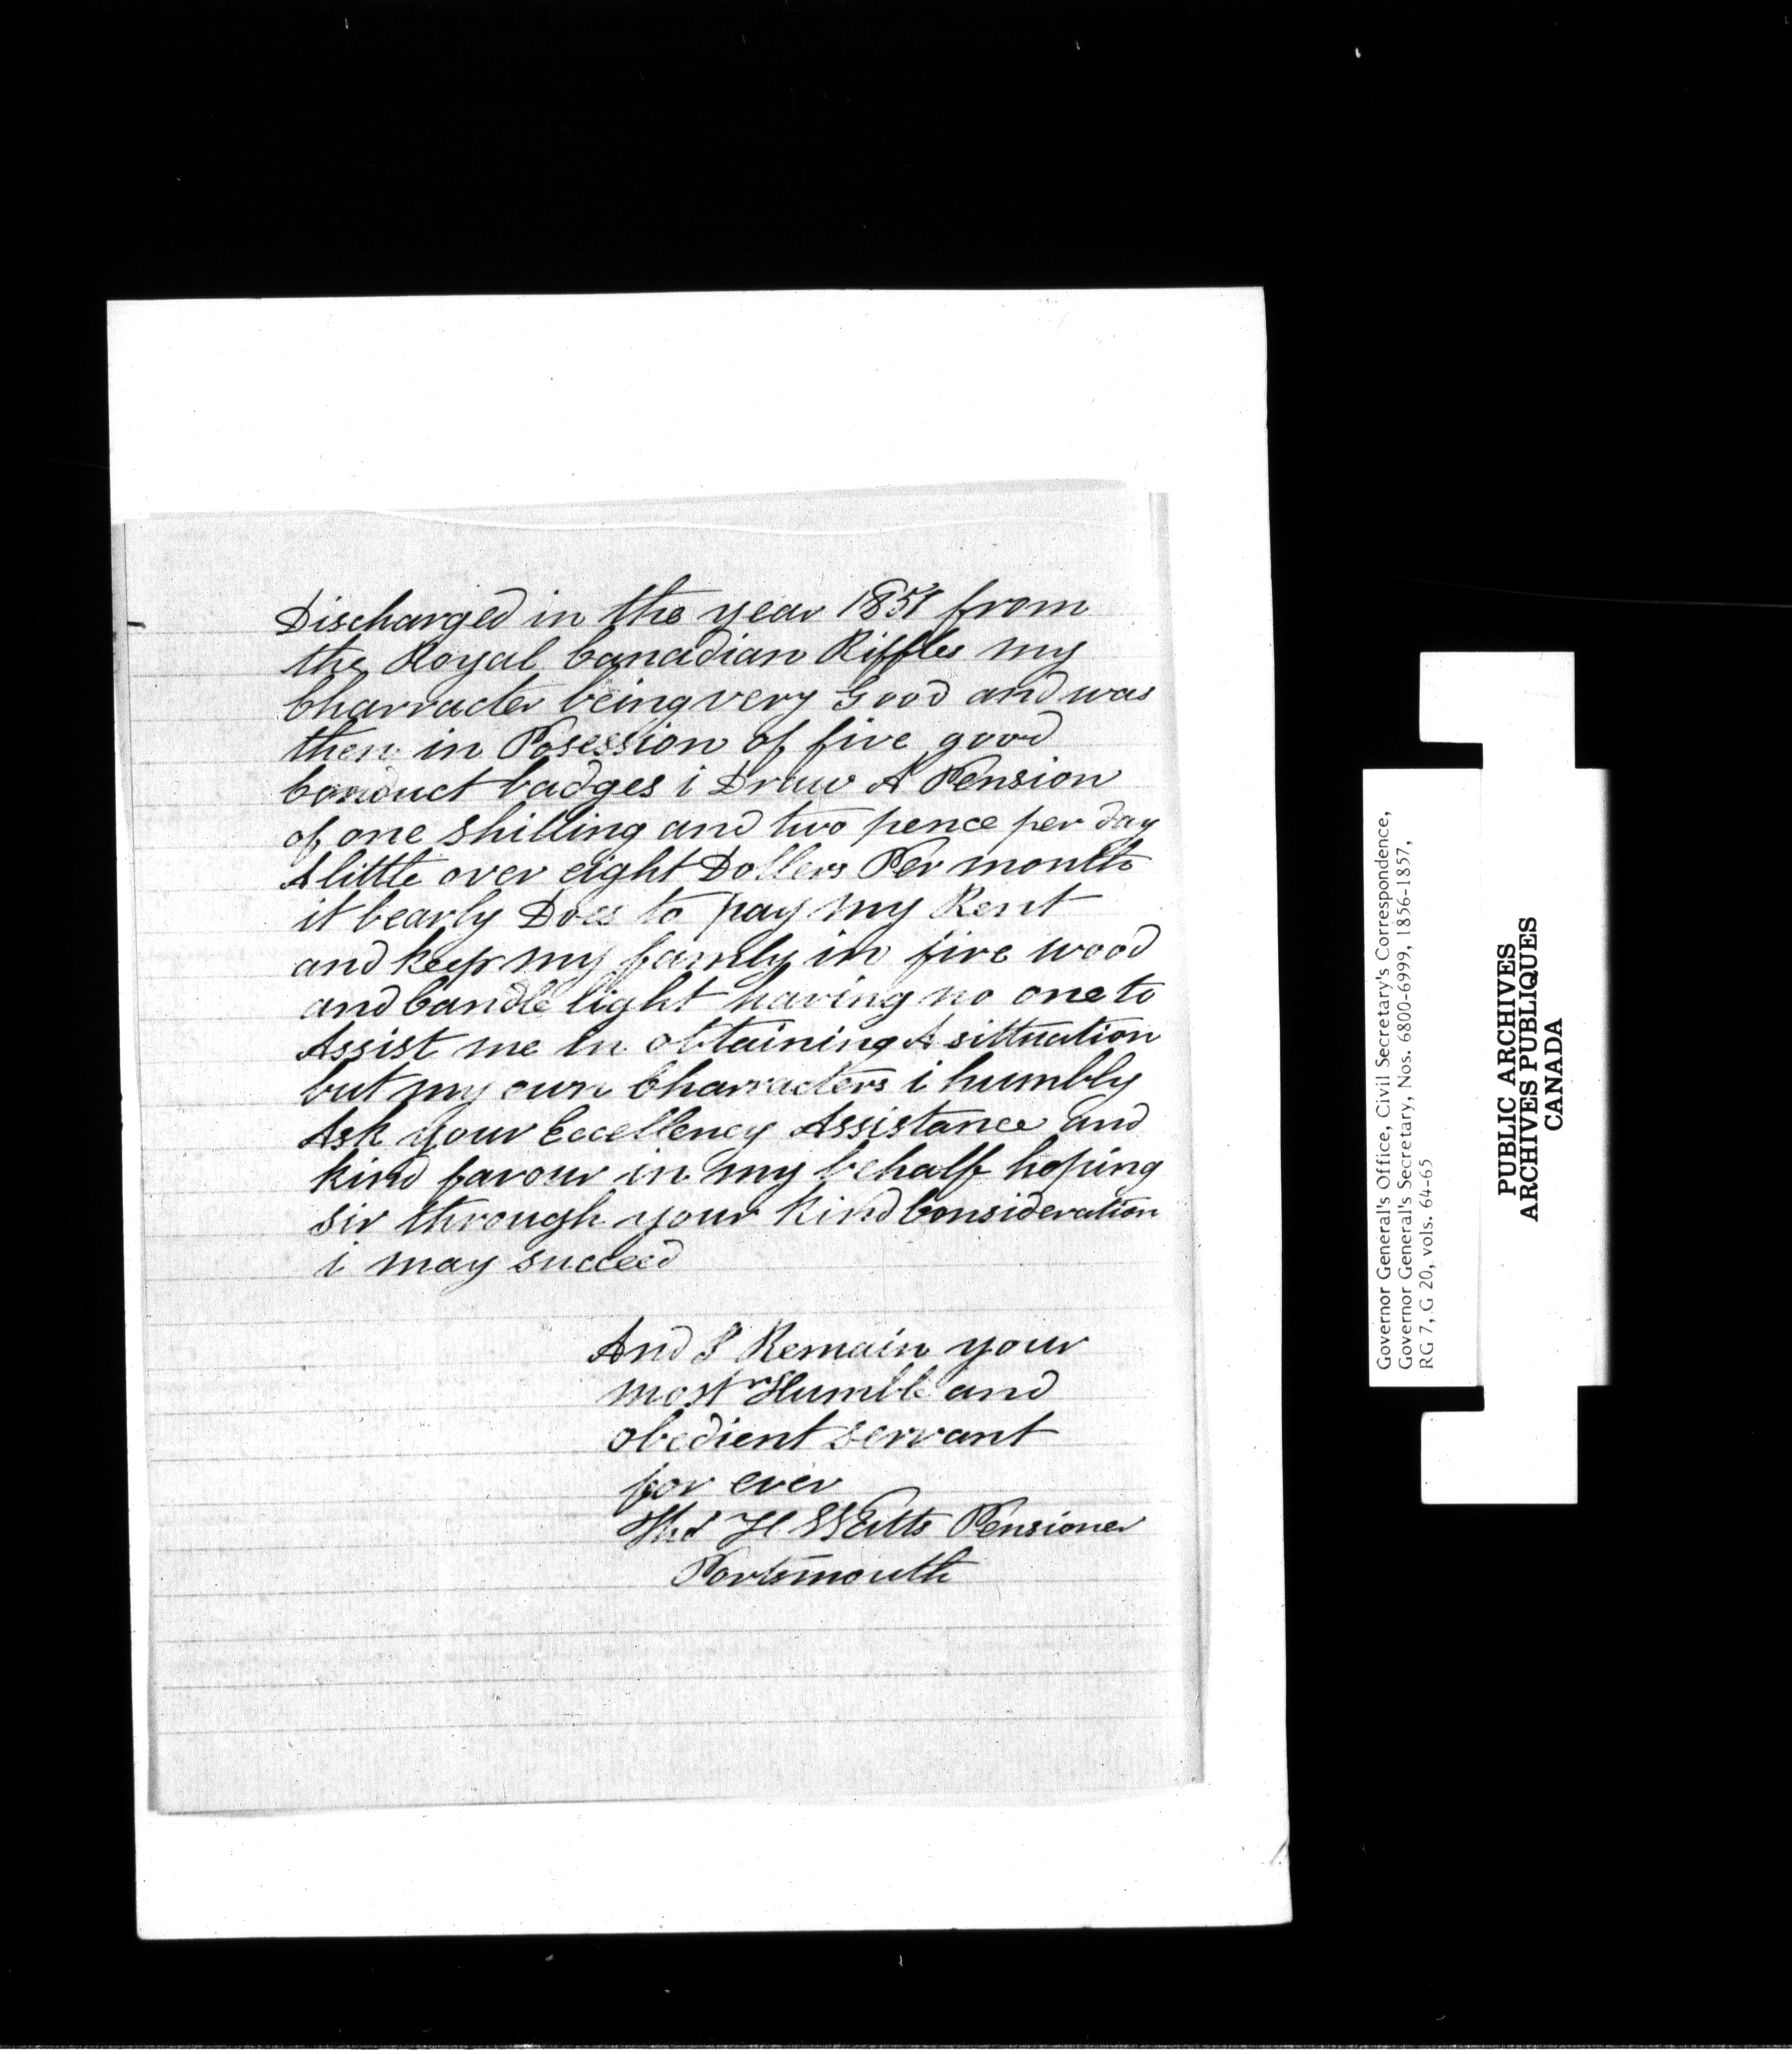 Discharged in the year 1851 from
the Royal Canadian Riffles my
Charracter being very Good and was
then in Posession of five good
Conduct badges i Draw A Pension
of one shilling and two pence per day
A little over eight Dollers Per month
it bearly Does to pay my Rent
and keep my family in fire wood
and Candle light having no one to
Assist me in obtaining A sittuation
but my own Charracters i humbly
Ask your Eccellency Assistance and
kind favour in my behalf hoping
sir through your kind Consideration
i may succeed
And I Remain your
most Humble and
obedient servant
for ever
H Watts Pensioner
Portsmouth
Governor General's Office, Civil Secretary's Correspondence,
Governor General's Secretary, Nos. 6800-6999, 1856-1857,
RG 7, G 20, vols. 64-65
PUBLIC ARCHIVES
ARCHIVES PUBLIQUES
CANADA